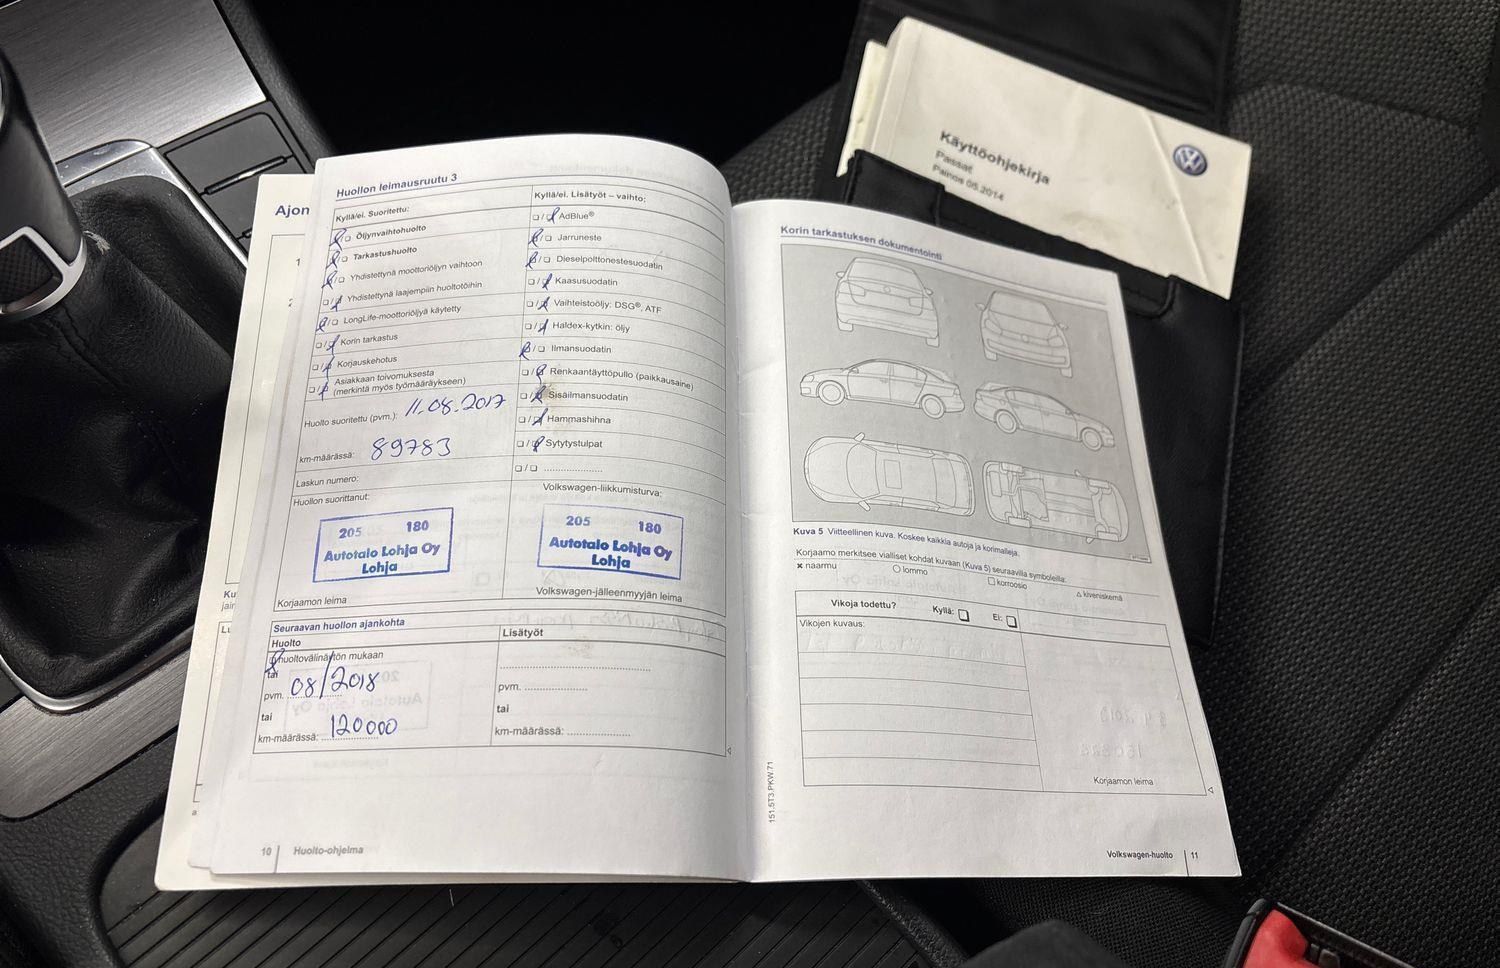 Käyttöohjekirja
Passat
Painos 05.2014
Ajon
Huollon leimausruutu 3
Kyllä/ei. Suoritettu:
Öljynvaihtohuolto
Tarkastushuolto
Yhdistettynä moottoriöljyn vaihtoon
Yhdistettynä laajempiin huoltotöihin
LongLife-moottoriöljyä käytetty
Korin tarkastus
Korjauskehotus
Asiakkaan toivomuksesta
(merkintä myös työmääräykseen)
Huolto suoritettu (pvm.): 11.08.2017
km-määrässä: 89783
Laskun numero:
Huollon suorittanut:
205 180
Autotalo Lohja Oy
Lohja
Korjaamon leima
Kyllä/ei. Lisätyöt – vaihto:
AdBlue®
Jarruneste
Dieselpolttonestesuodatin
Kaasusuodatin
Vaihteistoöljy: DSG®, ATF
Haldex-kytkin: öljy
Ilmansuodatin
Renkaantäyttöpullo (paikkausaine)
Sisäilmansuodatin
Hammashihna
Sytytystulpat
Volkswagen-liikkumisturva:
205 180
Autotalo Lohja Oy
Lohja
Volkswagen-jälleenmyyjän leima
Seuraavan huollon ajankohta
Huolto
huoltovälinäytön mukaan
tai
pvm. 08/2018
tai
km-määrässä: 120000
Lisätyöt
pvm.
tai
km-määrässä:
10 Huolto-ohjelma
Korin tarkastuksen dokumentointi
Kuva 5 Viitteellinen kuva. Koskee kaikkia autoja ja korimalleja.
Korjaamo merkitsee vialliset kohdat kuvaan (Kuva 5) seuraavilla symboleilla:
× naarmu
○ lommo
□ korroosio
△ kiveniskemä
Vikoja todettu? Kyllä: Ei:
Vikojen kuvaus:
Korjaamon leima
151.5T3.PKW.71
Volkswagen-huolto 11